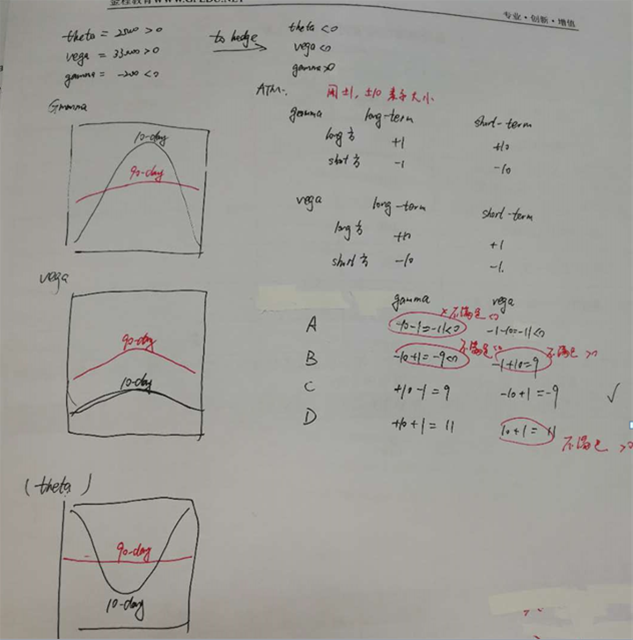 金程教育WWW.GFEDU.NET
专业·创新·增值
theta = 2500 >0
vega = 33000 >0
gamma = -200 <0
to hedge
theta <0
vega <0
gamma >0
ATM:
用±1, ±10 表示大小
gamma long-term short-term
long 方 +1 +10
short 方 -1 -10
vega long-term short-term
long 方 +10 +1
short 方 -10 -1
Gamma
10-day
90-day
vega
90-day
10-day
(theta)
90-day
10-day
gamma vega
×不满足
A -10-1=-11<0 -1-10=-11<0
不满足 不满足
B -10+1=-9<0 -1+10=9
C +10-1=9 -10+1=-9 ✓
D +10+1=11 10+1=11
不满足